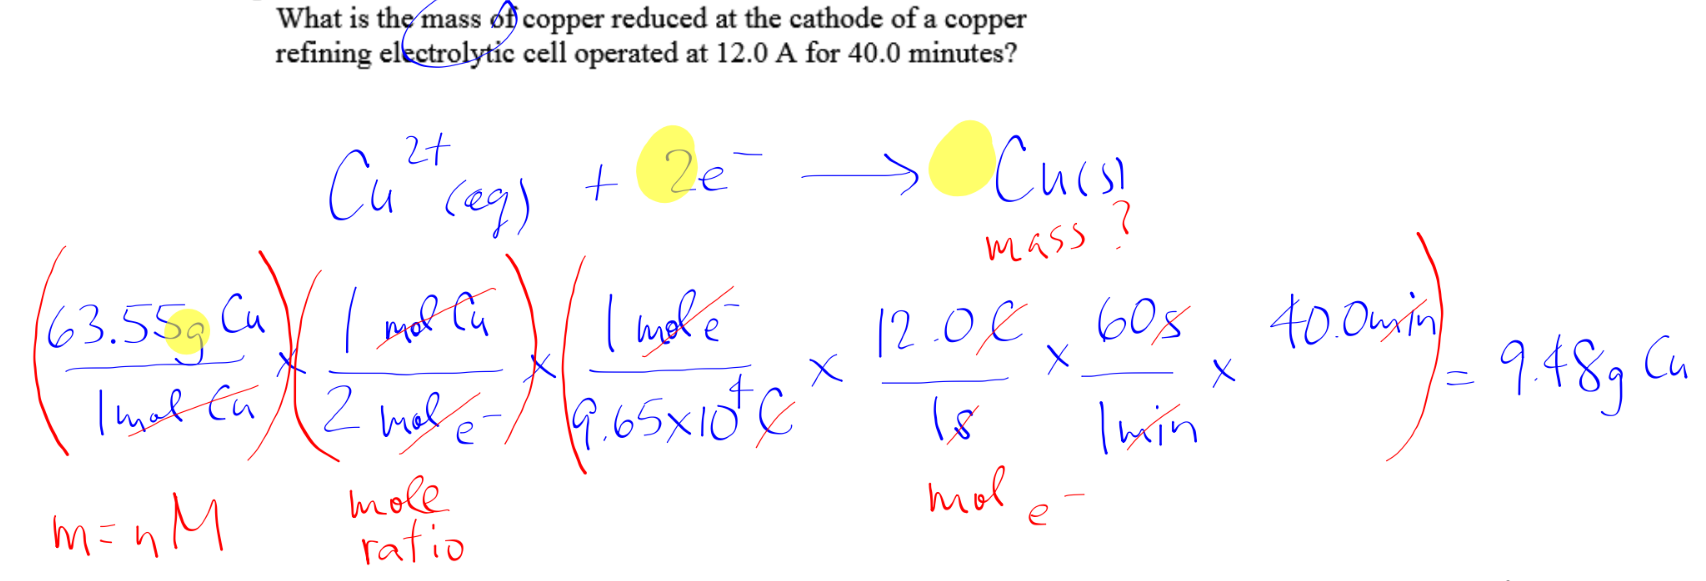 What is the mass of copper reduced at the cathode of a copper
refining electrolytic cell operated at 12.0 A for 40.0 minutes?
Cu²⁺(aq) + 2e⁻ → Cu(s)
mass?
(63.55g Cu / 1 mol Cu) × (1 mol Cu / 2 mol e⁻) × (1 mol e⁻ / 9.65×10⁴ C × 12.0 C / 1s × 60s / 1min × 40.0min) = 9.48g Cu
m = nM
mole
ratio
mol e⁻